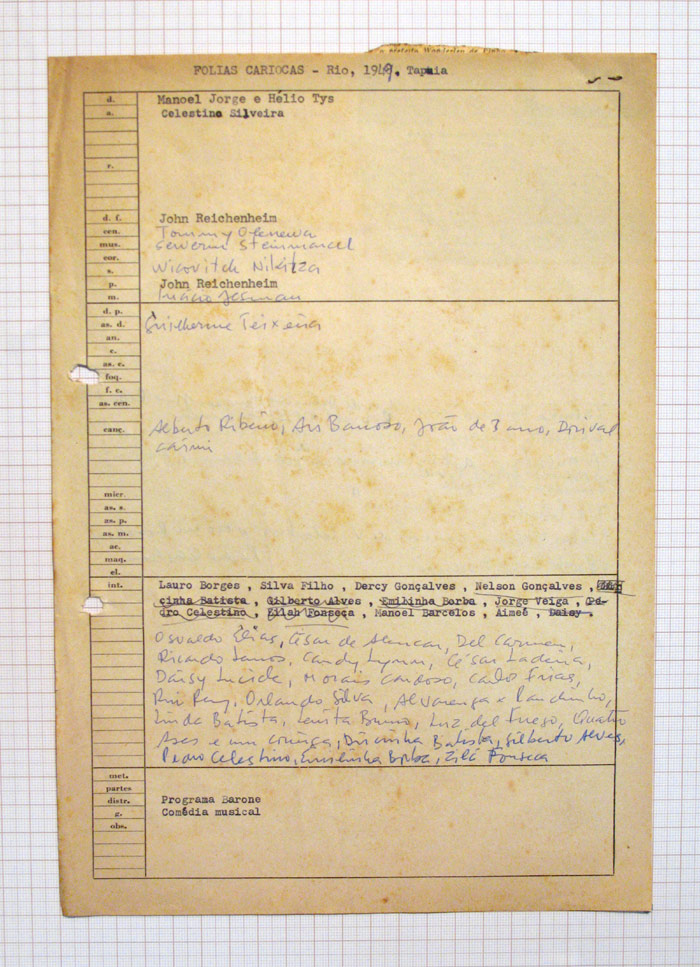 a prefeito Wanderley de Pinho
FOLIAS CARIOCAS - Rio, 1949. Tapuia
d. Manoel Jorge e Hélio Tys
a. Celestino Silveira
r.
d. f. John Reichenheim
cen. Tommy Olenewa
mus. Steinmarcel
cor.
s. Wicovitch Nikitza
p. John Reichenheim
m.
d. p.
as. d. Guilherme Teixeira
an.
c.
as. c.
foq.
f. c.
as. cen.
canç. Alberto Ribeiro, Ari Barroso, João de Barro, Dorival
Caimi
micr
as. s.
as. p.
as. m.
ac.
maq.
el.
int. Lauro Borges , Silva Filho , Dercy Gonçalves , Nelson Gonçalves , Dir-
cinha Batista , Gilberto Alves , Emilinha Borba , Jorge Veiga , Pe-
dro Celestino , Zilah Fonseca , Manoel Barcelos , Aimeé , Daisy .
Osvaldo Elias, César de Alencar, Del Carmen,
Ricardo Lemos, Candy Lynnn, César Ladeira,
Daisy Lucide, Morais Cardoso, Carlo Frias,
Rui Rey, Orlando Silva, Alvarenga e Ranchinho,
Linda Batista, Lenita Bruno, Luz del Fuego, Quatro
Ases e um coringa, Dircinha Batista, Gilberto Alves,
Pedro Celestino, Emilinha Borba, Zilá Fonseca
met.
partes
distr. Programa Barone
g. Comédia musical
obs.